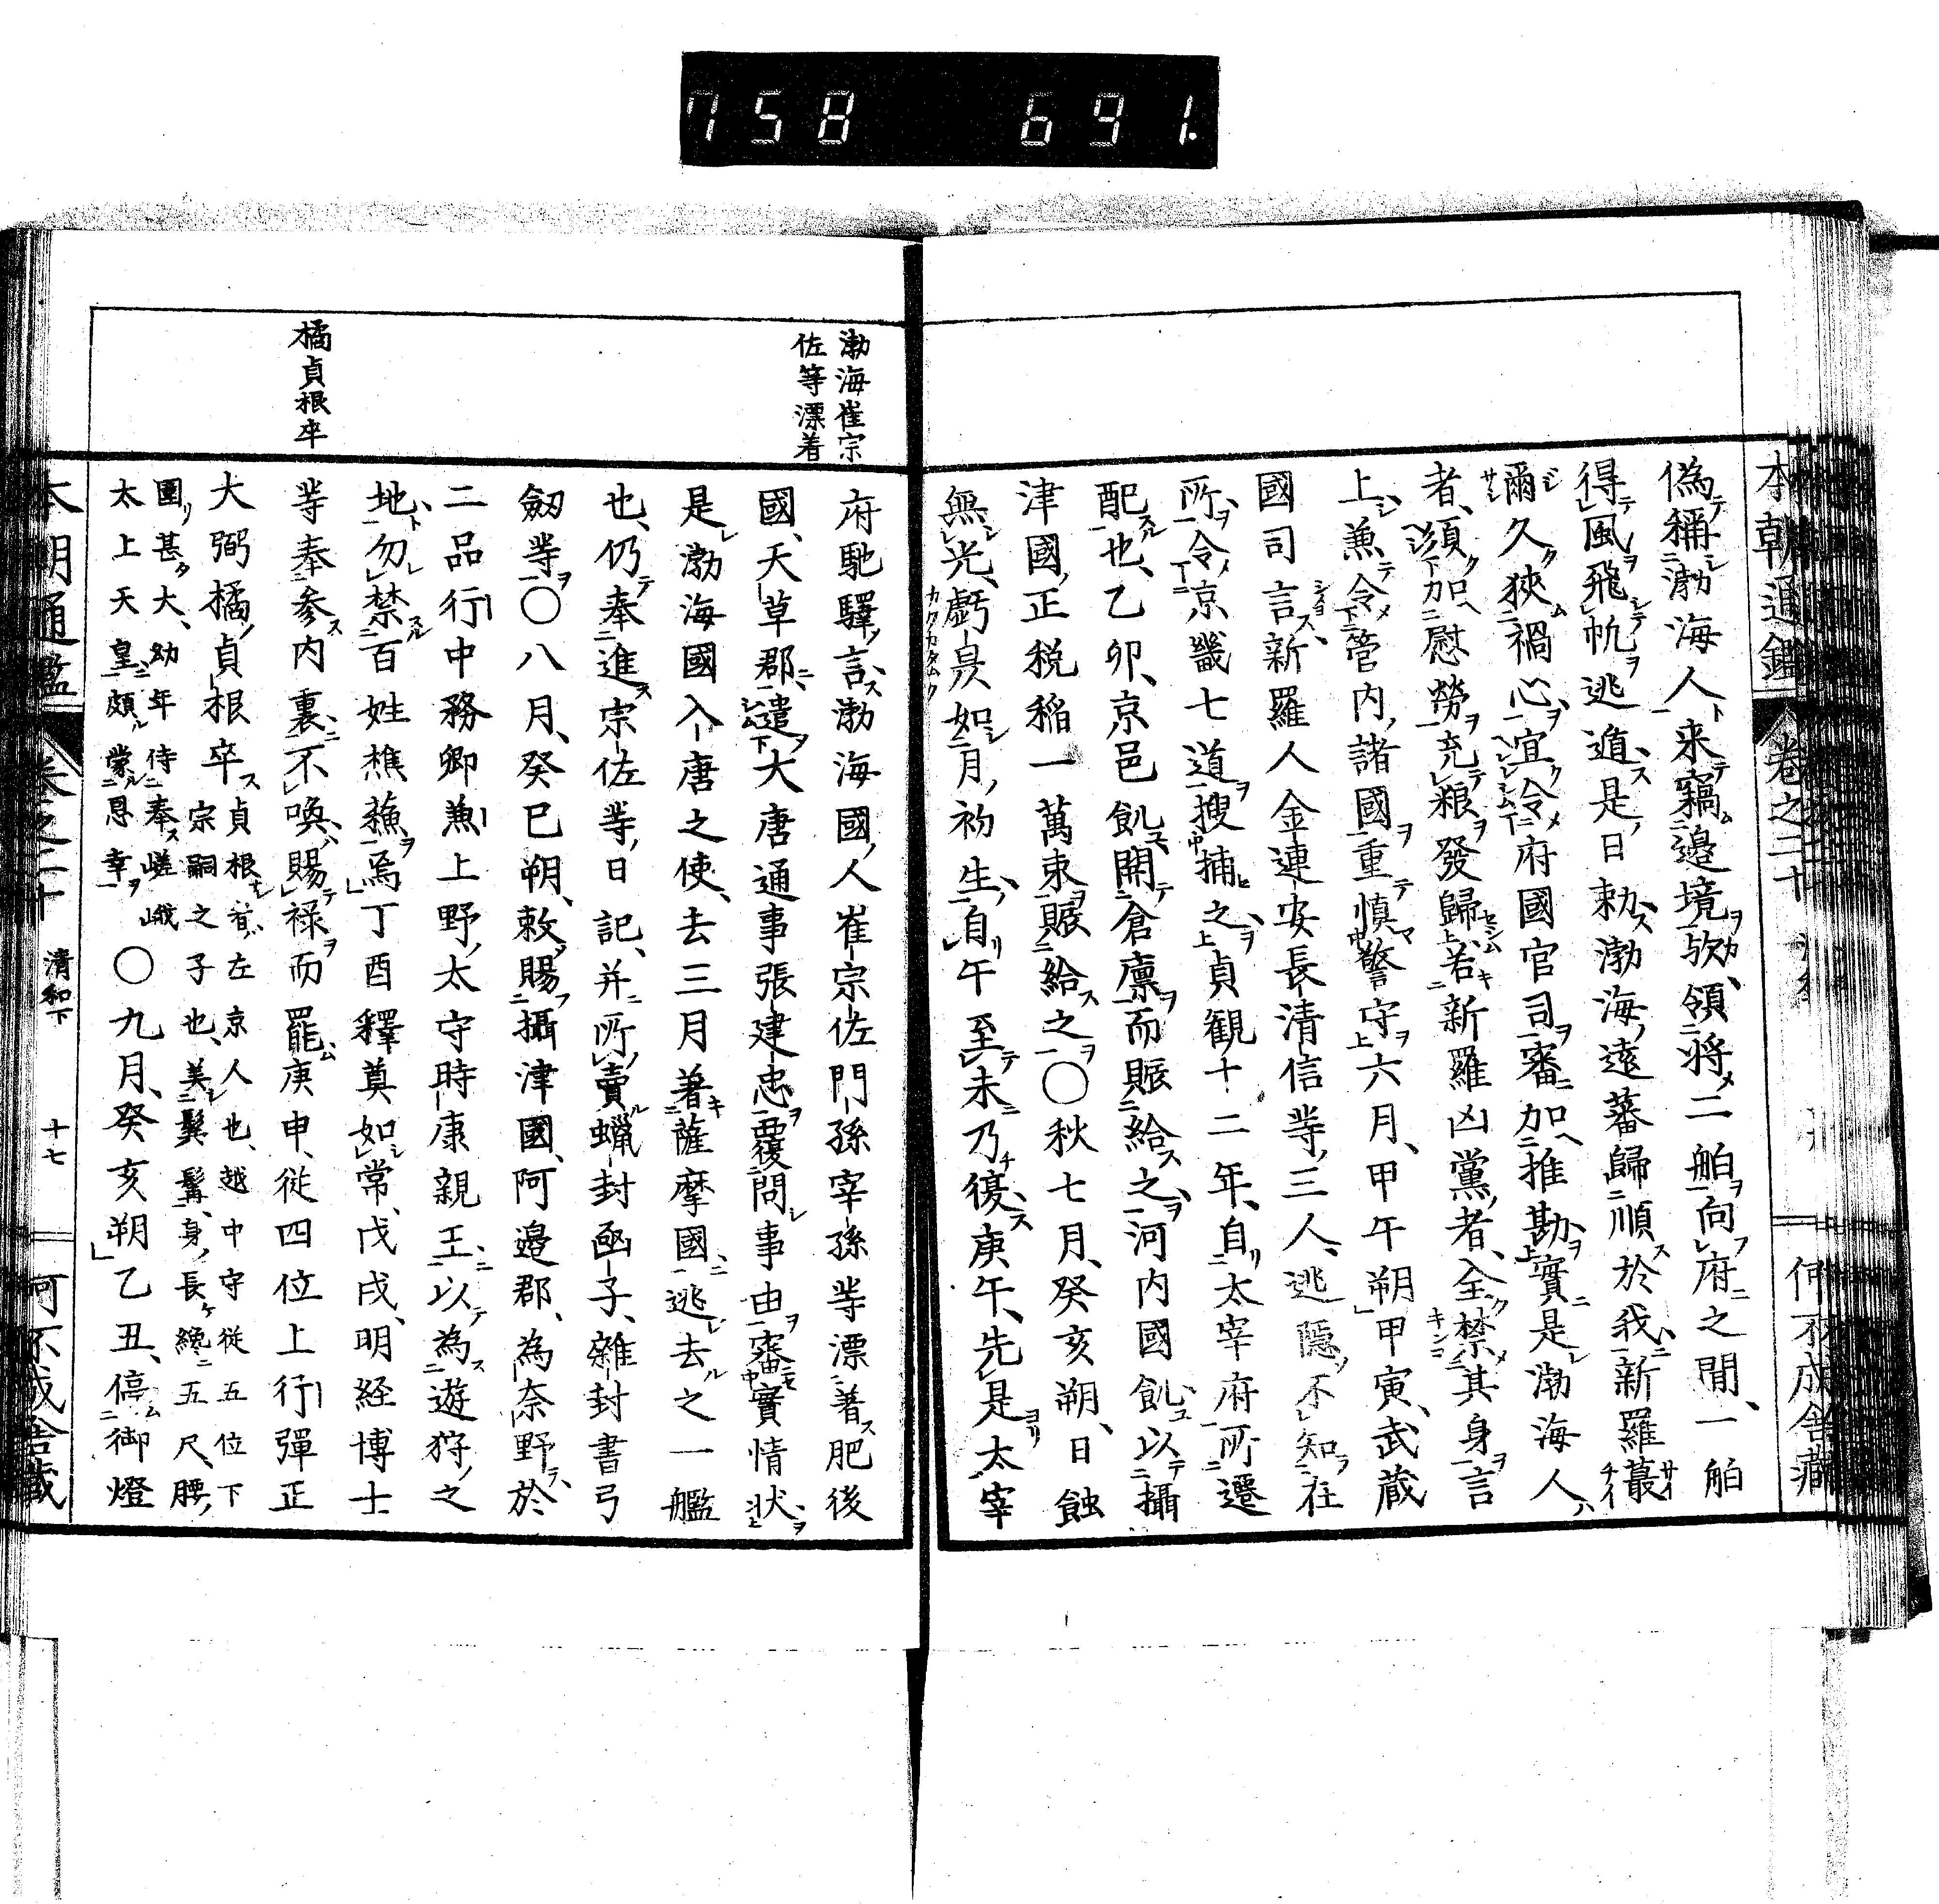 758 691.
本朝通鑑 卷之二十 何不成舎蔵
偽稱渤海人来窺邉境欤領将二舶向府之間一舶
得風飛帆逃遁是日勅渤海遠蕃歸順於我新羅蕞
爾久狹禍心宜令府國官司審加推勘實是渤海人
者須加慰勞充粮發歸若新羅凶黨者全禁其身言
上兼令管内諸國重慎警守六月甲午朔甲寅武蔵
國司言新羅人金連安長清信等三人逃隠不知在
所令京畿七道搜捕之貞観十二年自太宰府所遷
配也乙卯京邑飢開倉廩而賑給之河内國飢以攝
津國正税稲一萬束賑給之〇秋七月癸亥朔日蝕
無光虧昃如月初生自午至未乃復庚午先是太宰
渤海崔宗
佐等漂着
府馳驛言渤海國人崔宗佐門孫宰孫等漂着肥後
國天草郡遣大唐通事張建忠覆問事由審實情状
是渤海國入唐之使去三月着薩摩國逃去之一艦
也仍奉進宗佐等日記并所賣蝋封函子雜封書弓
劔等〇八月癸巳朔敕賜攝津國阿邉郡為奈野於
二品行中務卿兼上野太守時康親王以為遊狩之
地勿禁百姓樵蘓焉丁酉釋奠如常戊戌明経博士
等奉参内裏不喚賜禄而罷庚申従四位上行彈正
橘貞根卒
大弼橘貞根卒
貞根者左京人也越中守従五位下
宗嗣之子也美鬓髯身長纔五尺腰
圍甚大幼年侍奉嵯峨
太上天皇頗蒙恩幸
〇九月癸亥朔乙丑停御燈
本朝通鑑 卷之二十 清和下 十七 何不成舎蔵